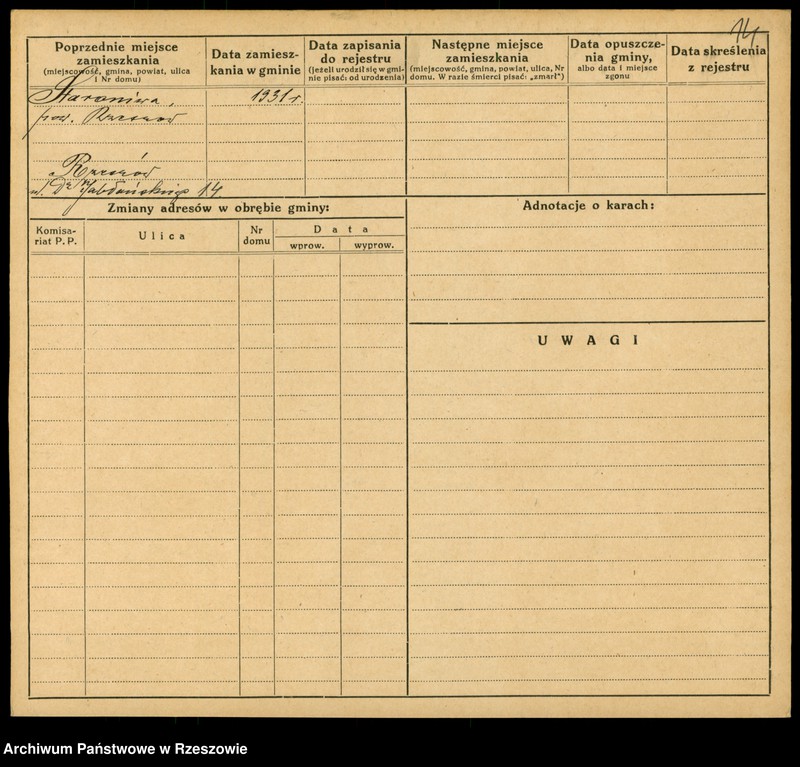 14
Poprzednie miejsce
zamieszkania
(miejscowość, gmina, powiat, ulica
i Nr domu)
Data zamiesz-
kania w gminie
Data zapisania
do rejestru
(jeżeli urodził się w gmi-
nie pisać: od urodzenia)
Następne miejsce
zamieszkania
(miejscowość, gmina, powiat, ulica, Nr
domu. W razie śmierci pisać: „zmarł")
Data opuszcze-
nia gminy,
albo data i miejsce
zgonu
Data skreślenia
z rejestru
Staroniwa,
1931 r.
pow. Rzeszów
Rzeszów
ul. Dr Jabłońskiego 14.
Zmiany adresów w obrębie gminy:
Komisa-
riat P. P.
Ulica
Nr
domu
Data
wprow.
wyprow.
Adnotacje o karach:
UWAGI
Archiwum Państwowe w Rzeszowie